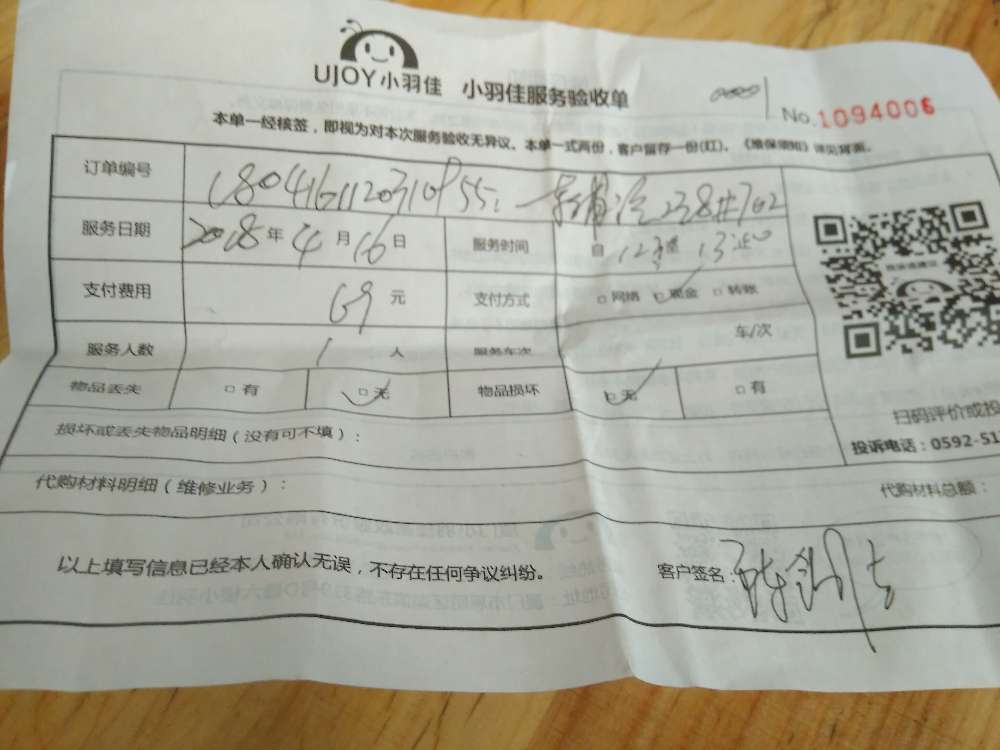 UJOY小羽佳 小羽佳服务验收单
No.1094006
本单一经核签，即视为对本次服务验收无异议。本单一式两份，客户留存一份(红)。《维保须知》详见背面。
订单编号
238#702
服务日期 2018年4月16日 服务时间 自 12 至 13
支付费用 69元 支付方式 □网络 □现金 □转账
服务人数 1人 服务车次 车/次
物品丢失 □有 □无 物品损坏 □无 □有
扫码评价或投
损坏或丢失物品明细（没有可不填）：
投诉电话：0592-51
代购材料明细（维修业务）： 代购材料总额：
以上填写信息已经本人确认无误，不存在任何争议纠纷。 客户签名：